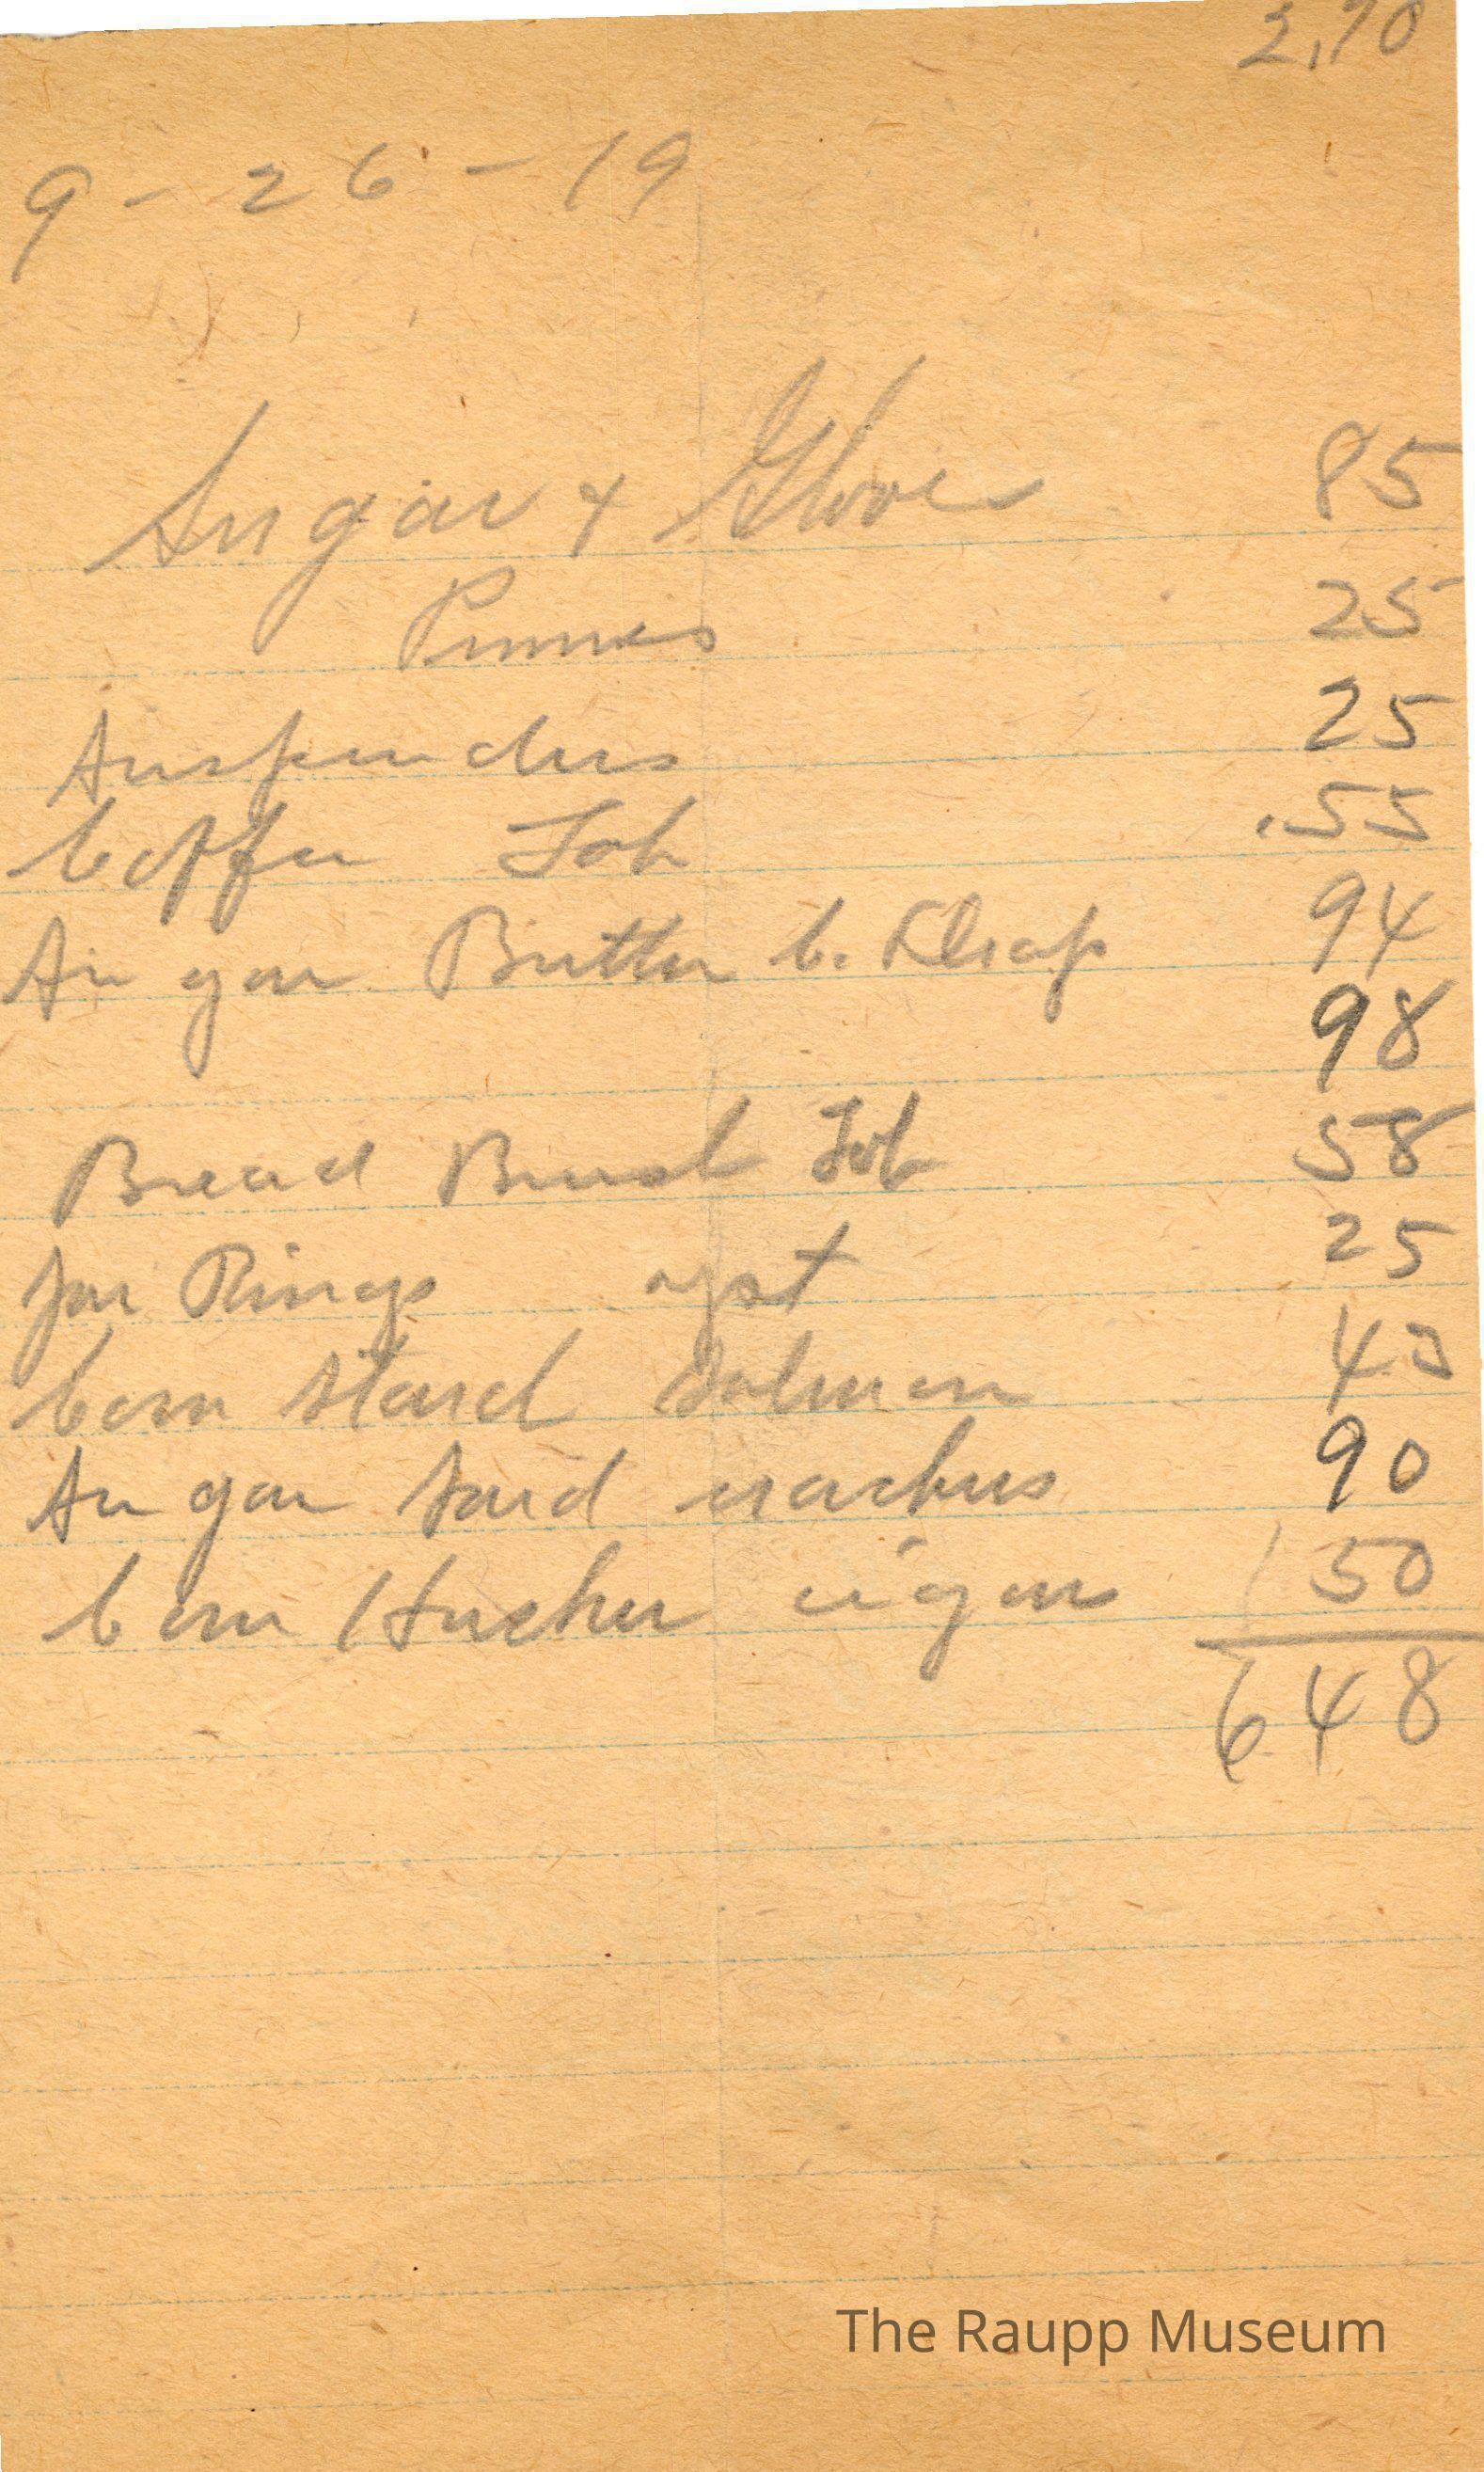 2,70
9 - 26 - 19
Sugar & Glove 85
Prunes 25
Suspenders 25
Coffee Tob .55
Sugar Butter C. Flap 94
98
Bread Brush Tob 58
Jar Rings yst 25
Corn Starch Salmon 43
Sugar Sard crackers 90
Corn Husker cigars 50
648
The Raupp Museum